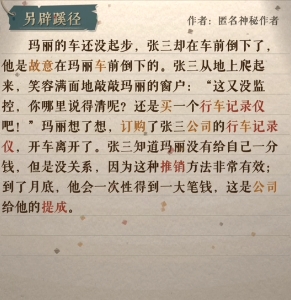 另辟蹊径
作者：匿名神秘作者
玛丽的车还没起步，张三却在车前倒下了，
他是故意在玛丽车前倒下的。张三从地上爬起
来，笑容满面地敲敲玛丽的窗户：“这又没监
控，你哪里说得清呢？还是买一个行车记录仪
吧！”玛丽想了想，订购了张三公司的行车记录
仪，开车离开了。张三知道玛丽没有给自己一分
钱，但是没关系，因为这种推销方法非常有效；
到了月底，他会一次性得到一大笔钱，这是公司
给他的提成。